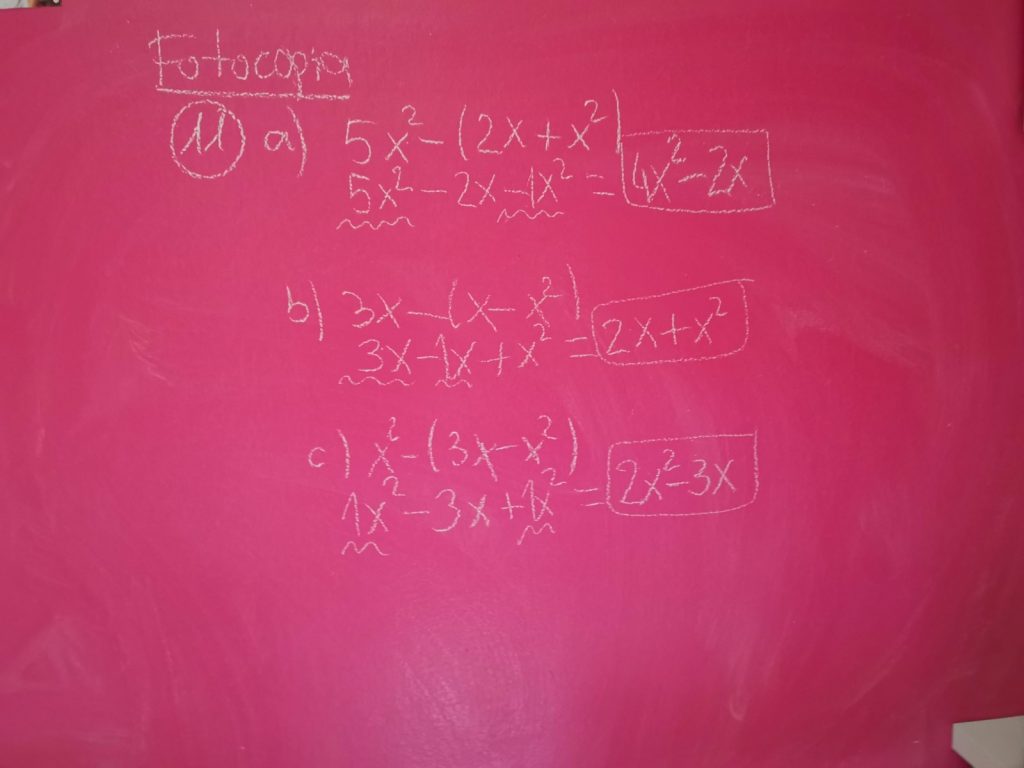 Fotocopia
11 a) 5x² - (2x + x²)
5x² - 2x - 1x² = 4x² - 2x
b) 3x - (x - x²)
3x - 1x + x² = 2x + x²
c) x² - (3x - x²)
1x² - 3x + 1x² = 2x² - 3x